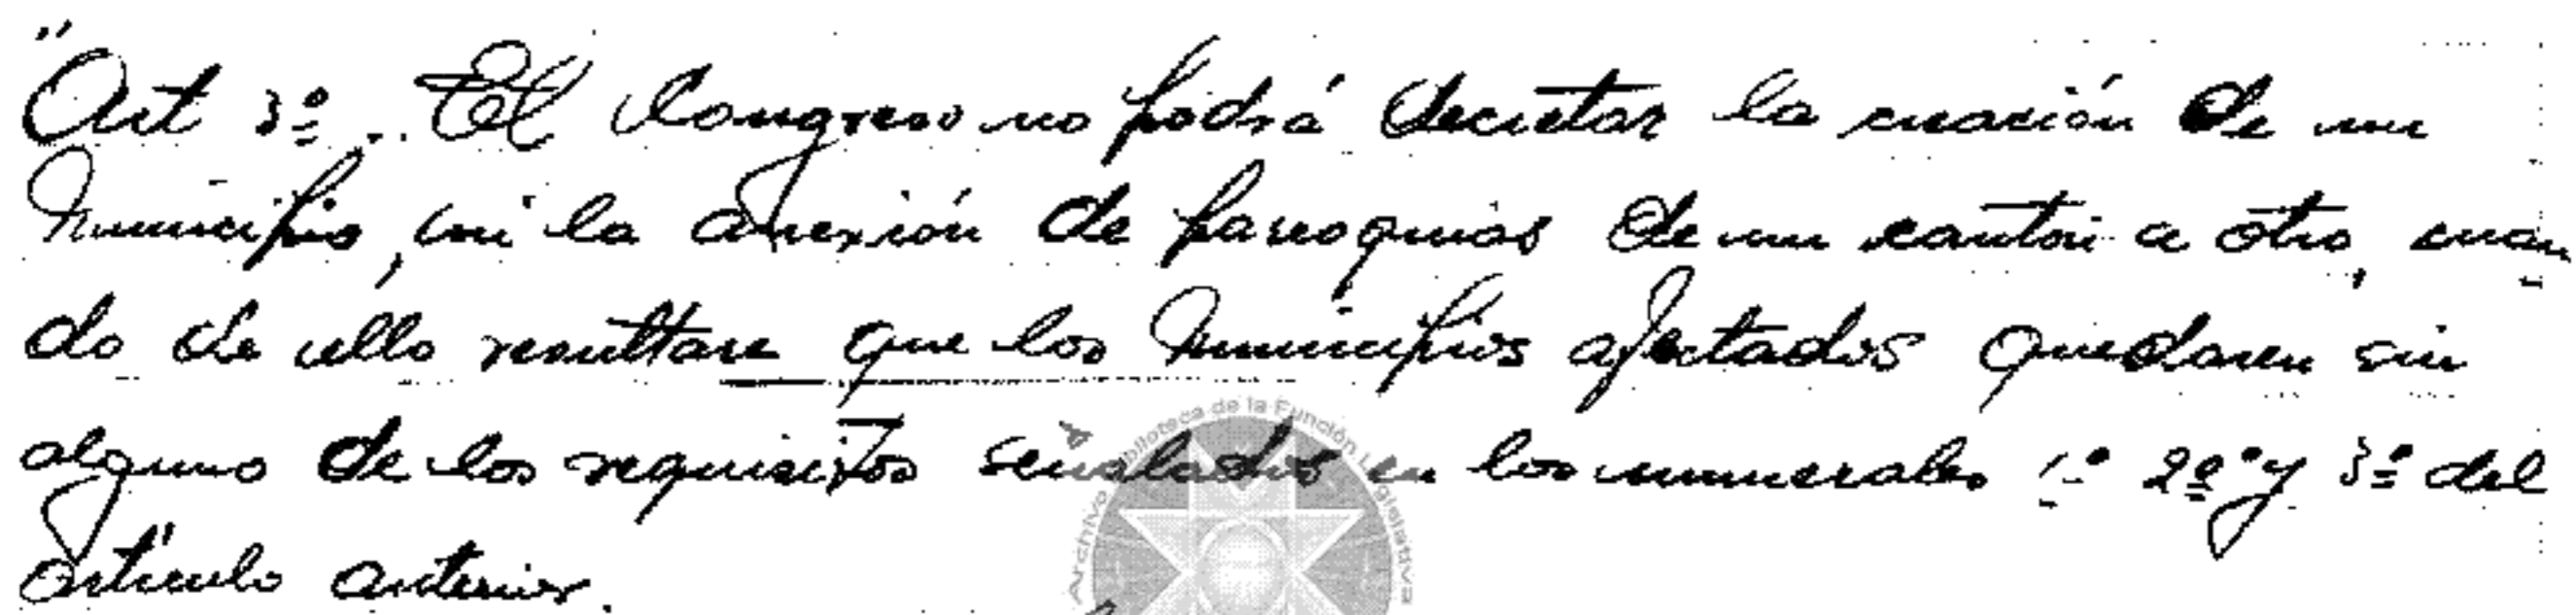 "Art 3º.. El Congreso no podrá decretar la creación de un
Municipio, ni la anexión de parroquias de un cantón a otro, cuan
do de ello resultare que los Municipios afectados quedaren sin
alguno de los requisitos señalados en los numerales 1º 2º y 3º del
artículo anterior.
Archivo Biblioteca de la Función Legislativa